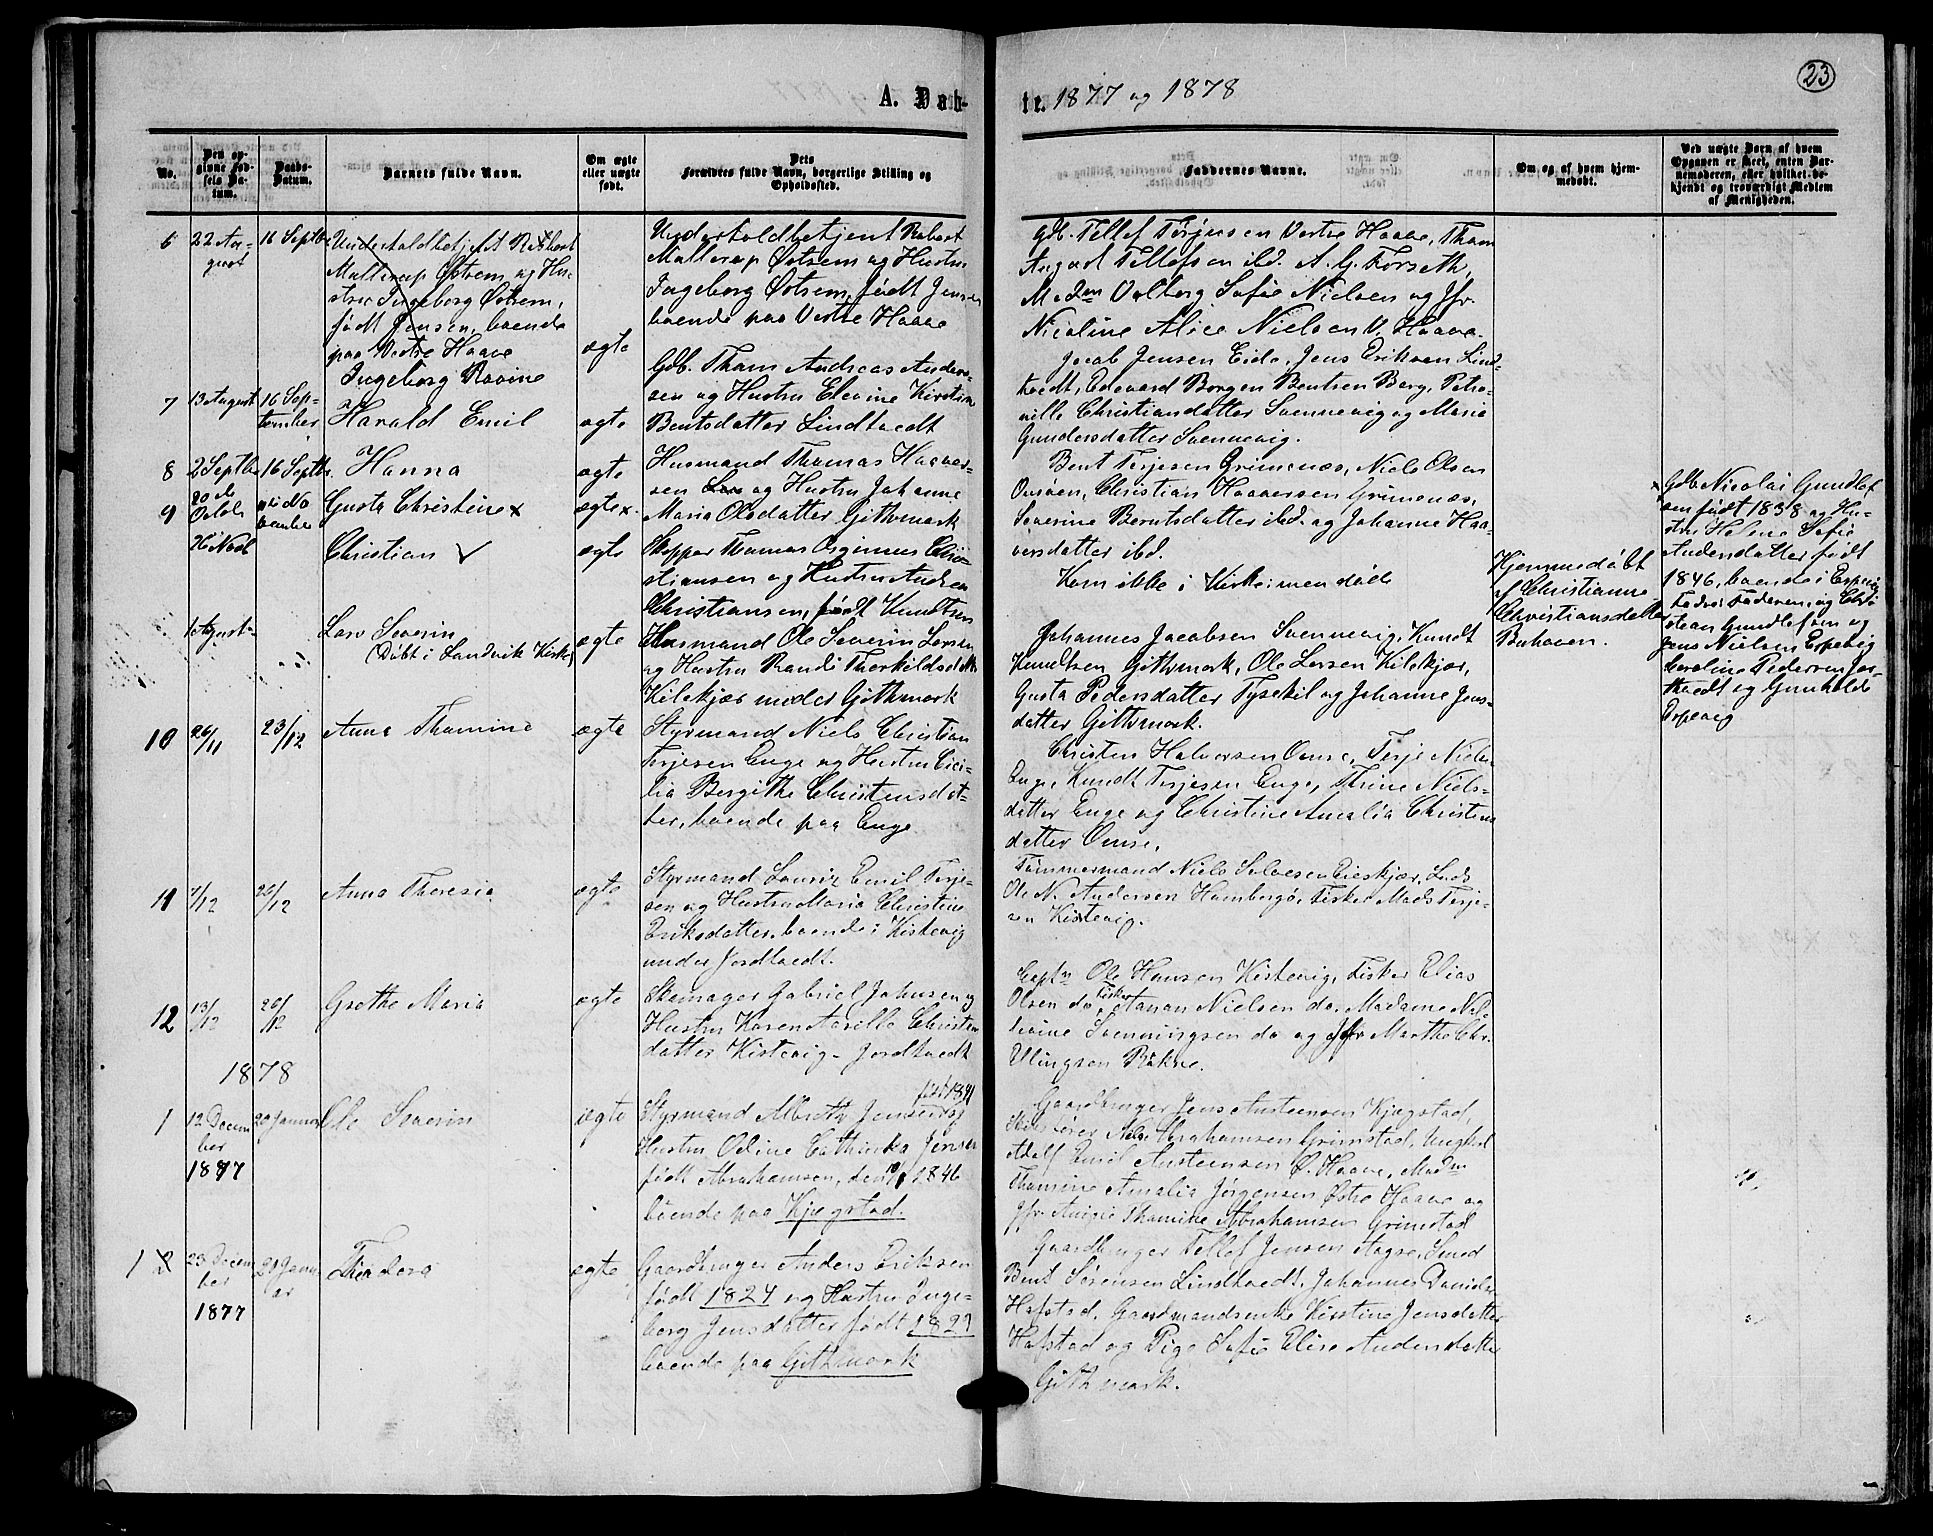 23
A. Døbte. 1877 og 1878
No.
Den opgivne Fødsels Datum.
Daabs-Datum.
Barnets fulde Navn.
Om ægte eller uægte født.
Dets Forældres fulde Navn, borgerlige Stilling og Opholdssted.
Faddernes Navne.
Om og af hvem hjemmedøbt.
Ved uægte Børn af hvem Opgaven er skeet, enten Barnemoderen, eller hvilket bekjendt og troværdigt Medlem af Menigheden.
6
22 August
16 Septbr
Undertoldbetjent Robert
Malterup Østrem og Hustru
Ingeborg Østrem,
født Jensen, boende
paa Vestre Haave
Ingeborg Rovine
ægte
Undertoldbetjent Robert
Malterup Østrem og Hustru
Ingeborg Østrem, født Jensen
boende paa Vestre Haave
Gdb. Tellef Terjesen Vestre Haave, Tham
August Tellefsen ibd. A. G. Forseth,
Madm Valborg Sofie Nielsen og Jfr.
Nicoline Alice Nielsen V. Haave.
7
13 August
16 September
Harald Emil
ægte
Gdb. Tham Andreas Andersen
og Hustru Elevine Kirstine
Bentsdatter Lindtvedt
Jacob Jensen Eide, Jens Eriksen Lindtvedt,
Edevard Borgen Bentsen Berg, Petronille
Christiansdatter Svennevig og Maria
Gundersdatter Svennevig.
8
2 Septbr
16 Septbr.
Hanna
ægte
Husmand Thomas Haaversen
og Hustru Johanne
Maria Olsdatter Githmark
Bent Terjesen Grimenæs, Niels Olsen
Christian Haaversen Grimenæs,
Severine Berntsdatter ibd. og Johanne Haaversdatter
ibd.
9
Gusta Christine x
ægte x
26 Novb
Christian
ægte
Skipper Thomas Christiansen
og Hustru Andrea
Christiansen, født Knudtsen
Kom ikke i Kirke: men døde
Hjemmedöbt
af Christianne
Christiansdatter
Buhaven.
x Gdb. Nicolai Gundlefsen
født 1838 og Hustru
Helene Sofie
Andersdatter født
1846, boende i Espevig
Faderen, og Christian
Gundlefsen og
Jens Nielsen Espevig
Caroline Pedersen
og Gunhilde
Espevig
1 August
Lars Severin
(Døbt i Landvik Kirke)
ægte
Husmand Ole Severin Larsen
og Hustru Randi Thorkildsdatter
Kilekjær under Githmark
Johannes Jacobsen Svennevig, Knudt
Knudtsen Githmark, Ole Larsen Kilekjær,
Gusta Pedersdatter Tysekil og Johanne Jensdatter
Githmark.
10
26/11
23/12
Anna Thomine
ægte
Styrmand Niels Christian
Terjesen Enge og Hustru Cicilia
Bergithe Christensdatter,
boende paa Enge
Christen Halvorsen Omre, Terje Nielsen
Enge, Knudt Terjesen Enge, Thrine Nielsdatter
Enge og Christine Amalia Christensdatter
Omre.
11
7/12
26/12
Anna Theresia
ægte
Styrmand Lauriz Emil Terjesen
og Hustru Maria Christine
Eriksdatter, boende i Kistevig
under Jordtvedt.
Tømmermand Niels Salvesen Eieskjær, Lods
Ole N. Andersen Hamborgø, Fisker Mads Terjesen
Kistevig.
12
13/12
26/12
Grethe Maria
ægte
Skomager Gabriel Johnsen og
Hustru Karen Aasille Christensdatter
Kistevig - Jordtvedt
Captn Ole Hansen Kistevig, Fisker Elias
Olsen do, Fisker Aanon Nielsen do. Madame
Svenningsen do og Jfr Marthe Chr.
Ellingsen Bakke.
1878
1
12 December
1877
20 Januar
Ole Severin
ægte
født 1841
Styrmand Albreth Jensen og
Hustru Odine Cathinka Jensen
født Abrahamsen, 1846
boende paa Kjegstad.
Gaardbruger Jens Austeensen Kjegstad,
Nels Abrahamsen Grimstad, Ungkarl
Adolf Emil Austeensen Ø. Haave, Madm
Thomine Amalia Jørgensen Østre Haave og
Jfr. Thomine Abrahamsen Grimstad
1 2
23 December
1877
20 Januar
Theodora
ægte
Gaardbruger Anders Eriksen
født 1824 og Hustru Ingeborg
Jensdatter født 1829
boende paa Githmark
Gaardbruger Tellef Jensen Aagre, Smed
Bent Sørensen Lindtvedt, Johannes Danielsen
Hafstad, Gaardmandsenke Kirstine Jensdatter
Hafstad og Pige Sofie Elise Andersdatter
Githmark.